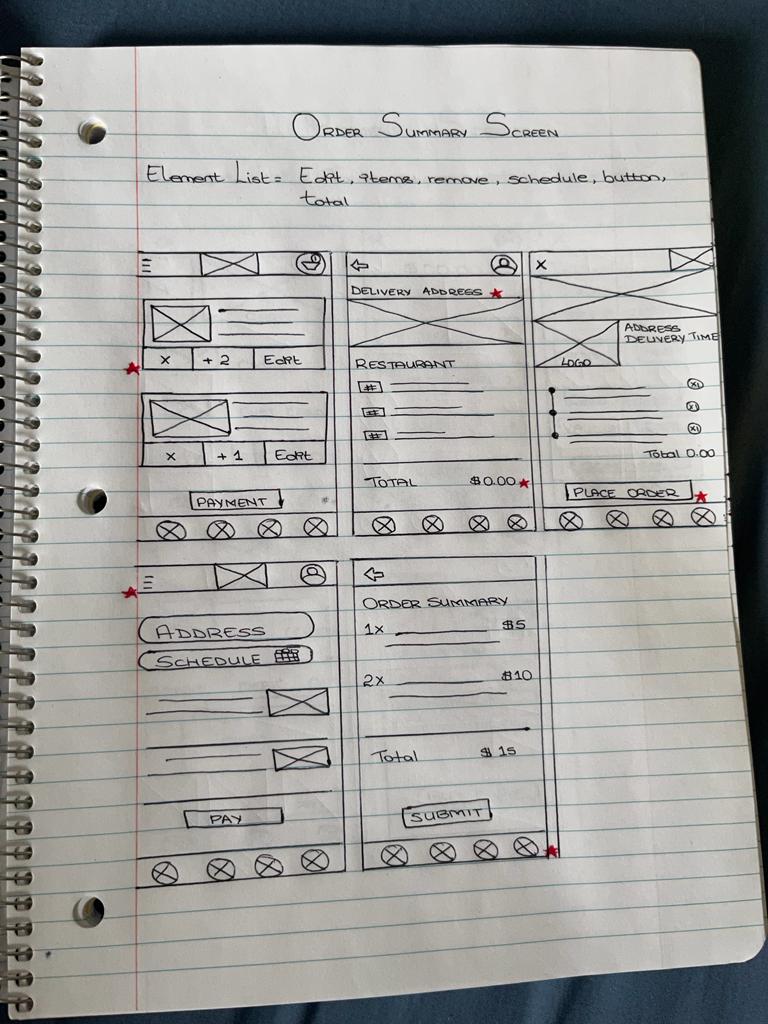 ORDER SUMMARY SCREEN
Element List = Edit, items, remove, schedule, button,
total
x +2 Edit
x +1 Edit
PAYMENT
DELIVERY ADDRESS
RESTAURANT
#
#
#
TOTAL $0.00
X
ADDRESS
DELIVERY TIME
LOGO
x1
x1
x1
Total 0.00
PLACE ORDER
ADDRESS
SCHEDULE
PAY
ORDER SUMMARY
1x $5
2x $10
Total $15
SUBMIT